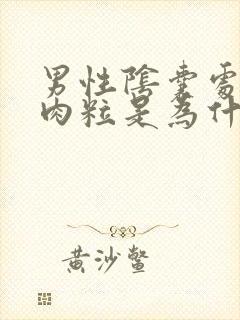 男性陰囊處
肉粒是為什
黃沙鱉